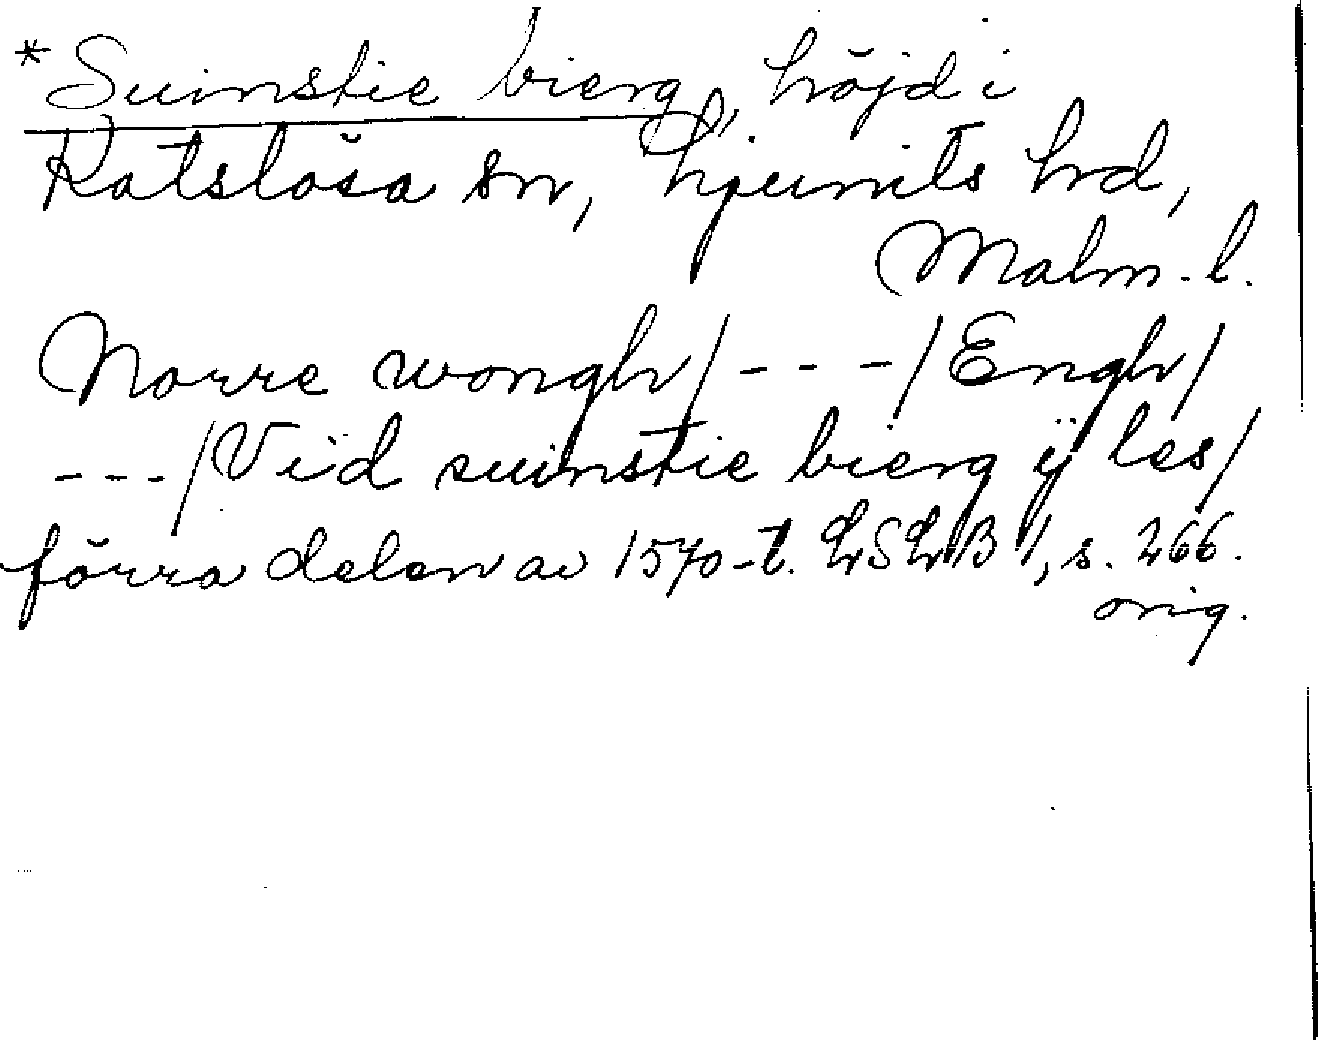 *Suinstie bierg, höjd i
Katslösa sn, Ljunits hd,
Malm. l.
Norre wongh/---/Engh/
---/Vid suinstie bierg ÿ les/
förra delen av 1570-t. LSLB 1, s. 266.
orig.